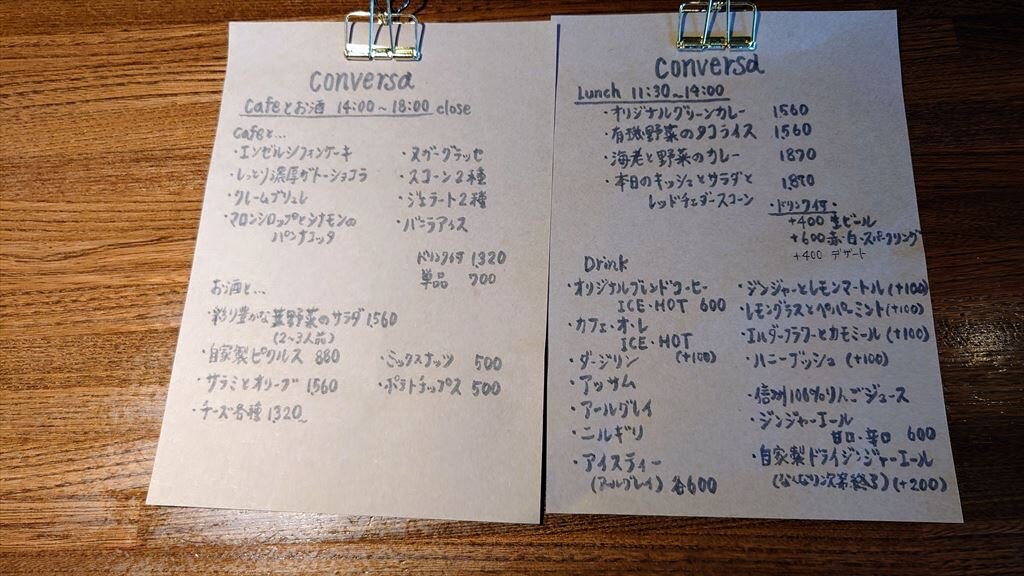 conversa
Cafeとお酒 14:00~18:00 close
Cafeと...
・エンゼルシフォンケーキ
・しっとり濃厚ガトーショコラ
・クレームブリュレ
・マロンシロップとシナモンの
パンナコッタ
・ヌガーグラッセ
・スコーン2種
・ジェラート2種
・バニラアイス
ドリンク付 1,320
単品 700
お酒と...
・彩り豊かな葉野菜のサラダ 1,560
(2~3人前)
・自家製ピクルス 880
・サラミとオリーブ 1,560
・チーズ各種 1,320
・ミックスナッツ 500
・ポテトチップス 500
conversa
Lunch 11:30~14:00
・オリジナルグリーンカレー 1,560
・有機野菜のタコライス 1,560
・海老と野菜のカレー 1,870
・本日のキッシュとサラダと 1,870
レッドチェダースコーン
・ドリンク付・
+400 生ビール
+600 赤・白・スパークリング
+400 デザート
Drink
・オリジナルブレンドコーヒー
ICE・HOT 600
・カフェ・オ・レ
ICE・HOT
(+100)
・ダージリン
・アッサム
・アールグレイ
・ニルギリ
・アイスティー
(アールグレイ) 各600
・ジンジャーとレモンマートル(+100)
・レモングラスとペパーミント(+100)
・エルダーフラワーとカモミール(+100)
・ハニーブッシュ(+100)
・信州100%りんごジュース
・ジンジャーエール
甘口・辛口 600
・自家製ドライジンジャーエール
(なくなり次第終了)(+200)